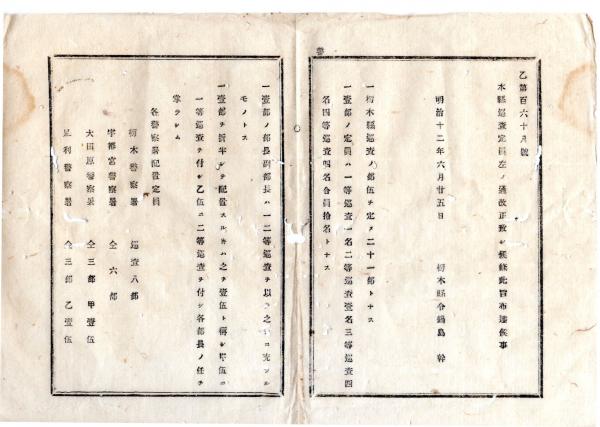 乙第百六十八號
本縣巡査定員左ノ通改正致シ候條此旨布達候事
明治十二年六月廿五日
栃木縣令鍋島 幹
一栃木縣巡査ノ部伍ヲ定メ二十一部トナス
一壹部ノ定員ハ一等巡査一名二等巡査壹名三等巡査四
名四等巡査四名合員拾名トナス
一壹部ノ部長副部長ハ一二等巡査ヲ以テ之ニ充ツル
モノトス
一壹部ヲ折半シテ配置スルトキハ之ヲ壹伍ト稱シ甲伍ニ
一等巡査ヲ付シ乙伍ニ二等巡査ヲ付シ各部長ノ任ヲ
掌ラシム
各警察署配置定員
栃木警察署 巡査八部
宇都宮警察署 仝六部
大田原警察署 仝三部 甲壹伍
足利警察署 仝三部 乙壹伍